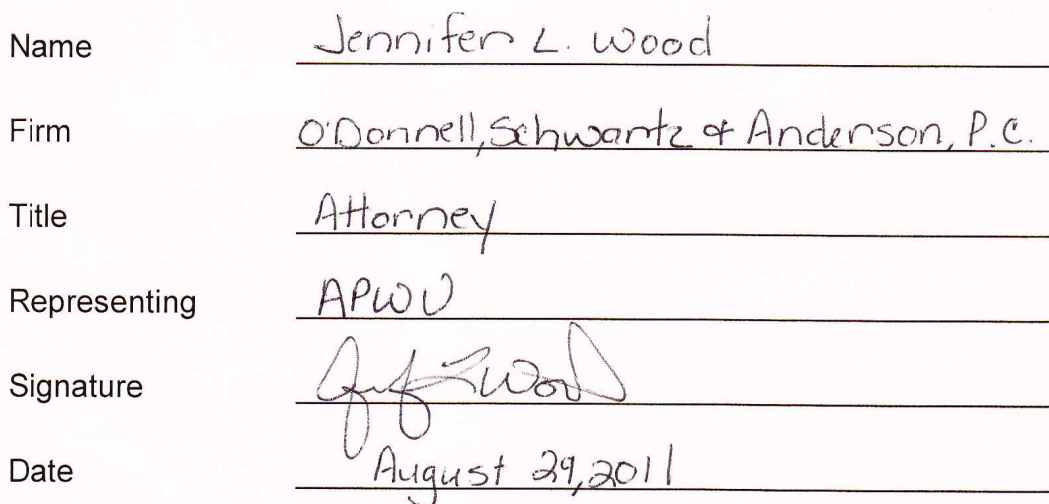 Name Jennifer L. Wood
Firm O'Donnell, Schwartz & Anderson, P.C.
Title Attorney
Representing APWU
Signature Jenf L Wood
Date August 29, 2011